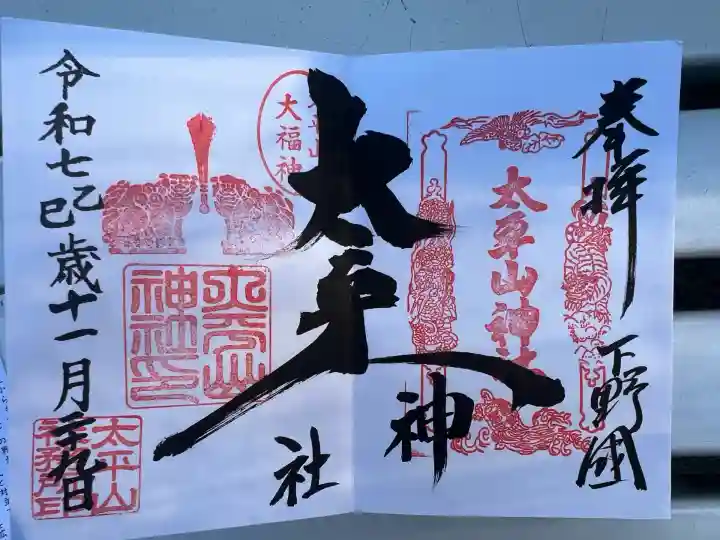 奉拝
下野國
太平山神社
太平山神社
太平山
大福神
太平山
神社印
令和七乙巳歳十一月二十九日
太平山
社務所印